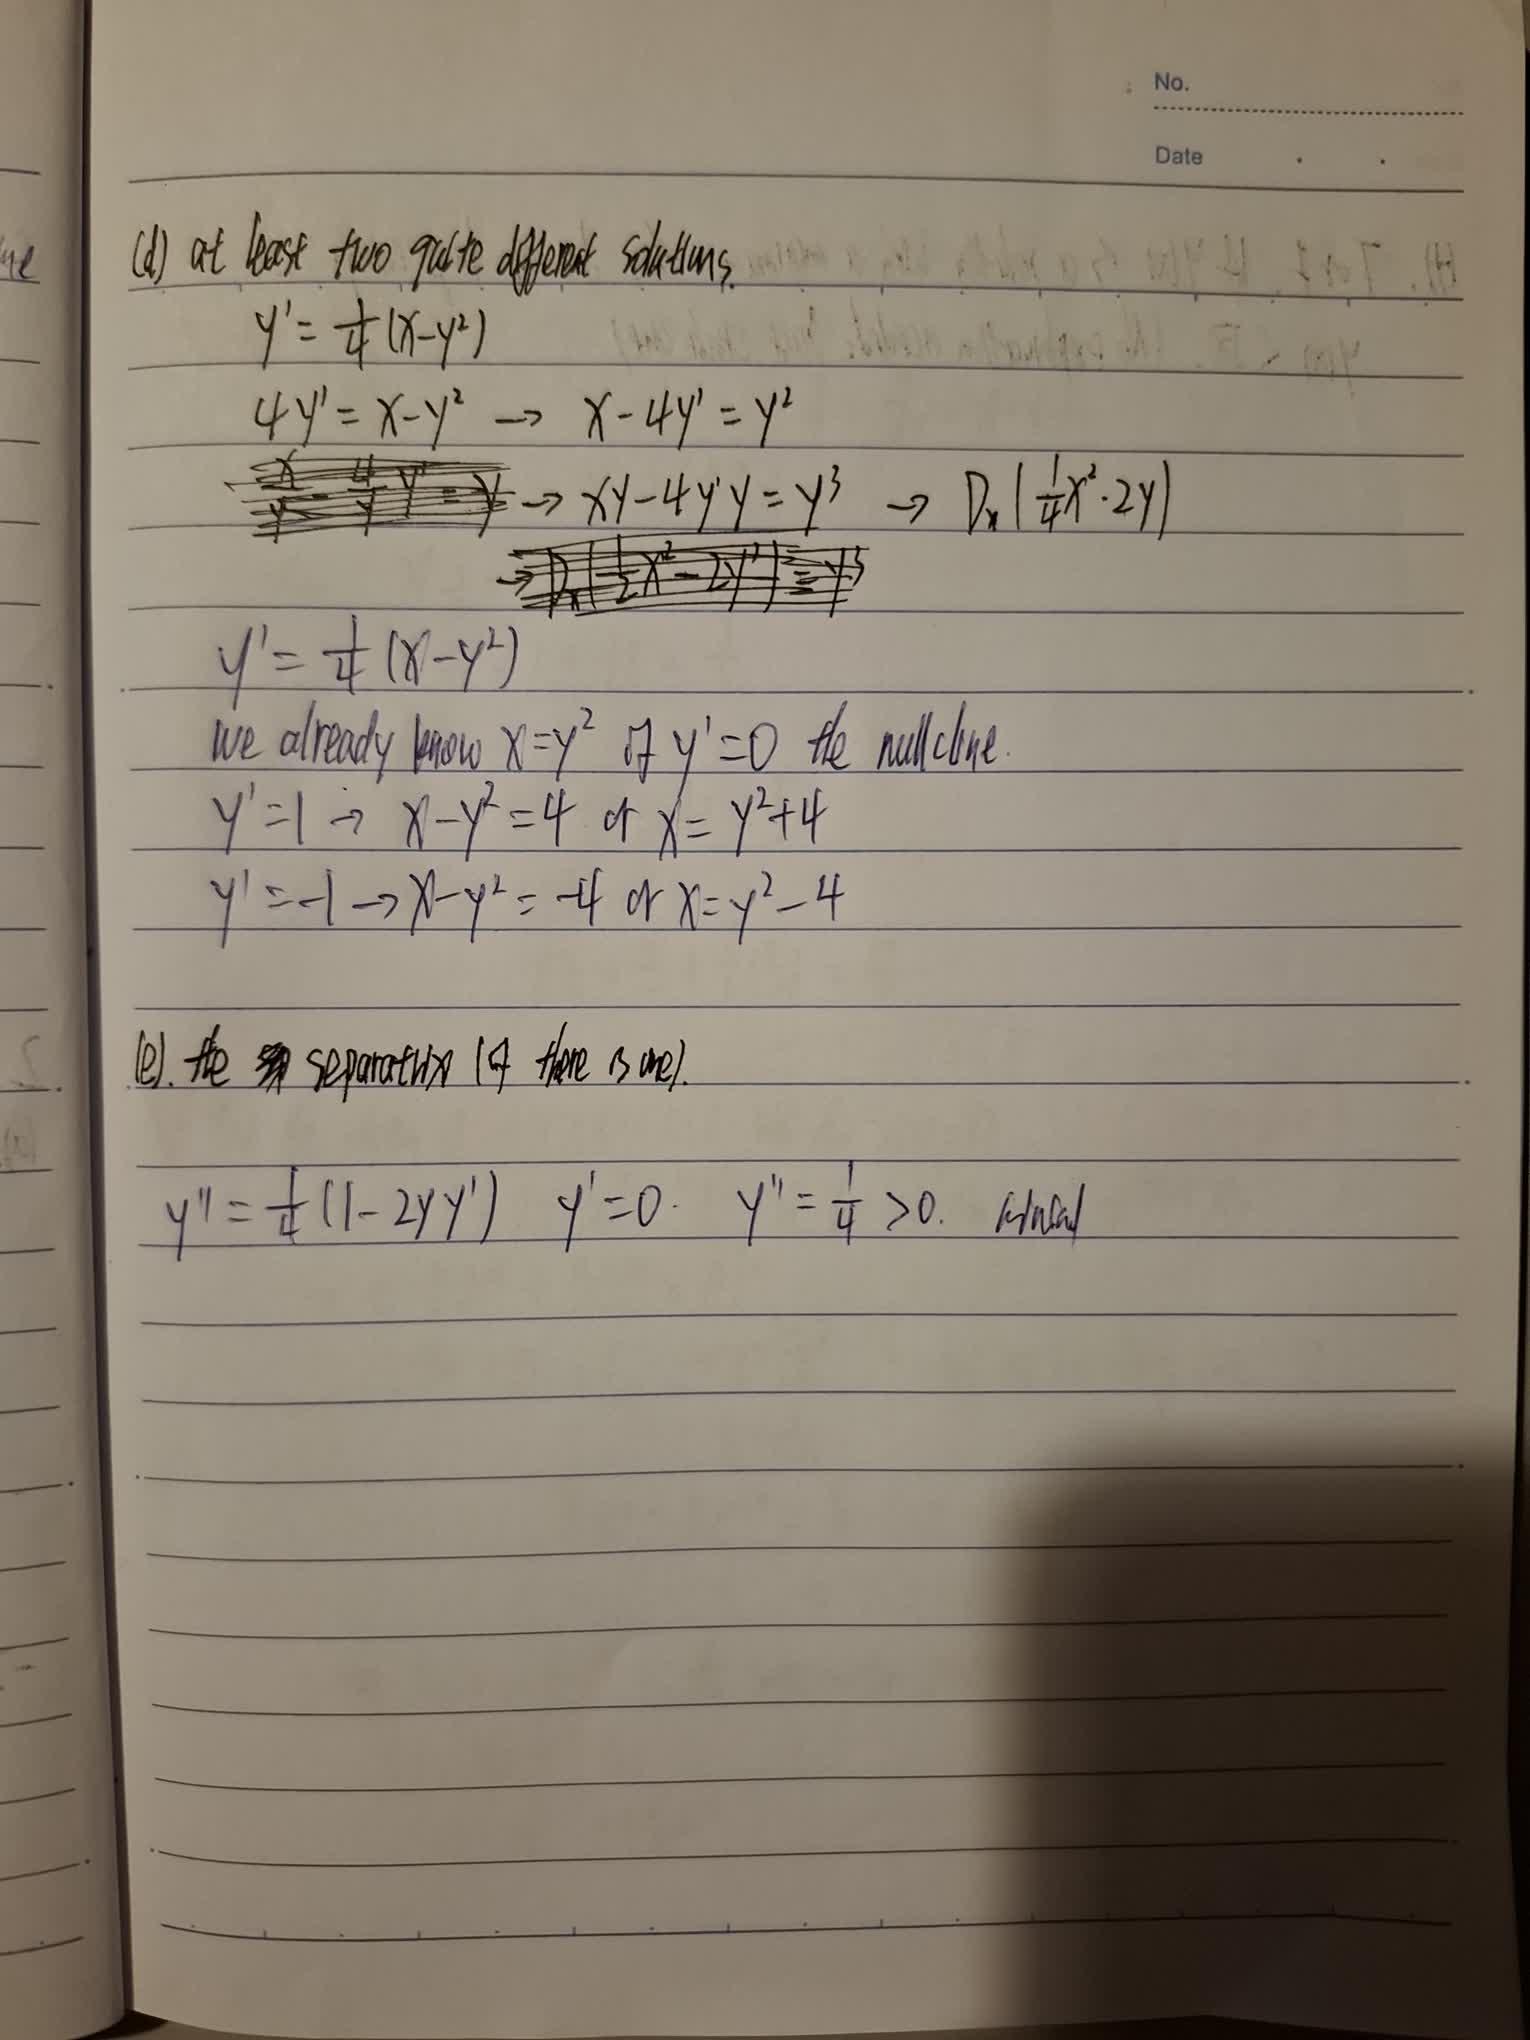 No.
Date
(d) at least two quite different solutions.
y' = 1/4 (x-y²)
4y' = x-y² → x-4y' = y²
→ xy-4y'y = y³ → Dx(1/4x²·2y)
y' = 1/4 (x-y²)
we already know x=y² if y'=0 the nullcline.
y'=1 → x-y²=4 or x=y²+4
y'=-1 → x-y²=-4 or x=y²-4
(e). the separatrix (if there is one).
y'' = 1/4 (1-2yy') y'=0. y''=1/4 >0.